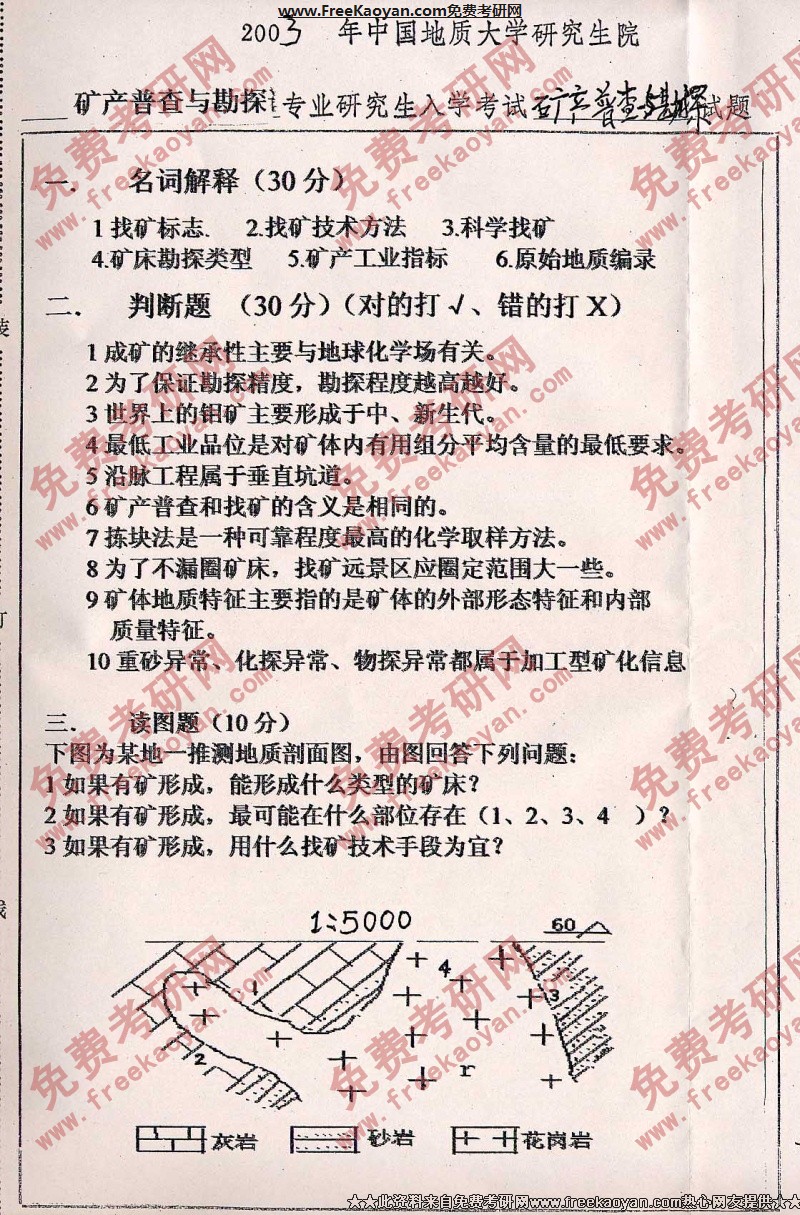 www.FreeKaoyan.com免费考研网
2003 年中国地质大学研究生院
矿产普查与勘探 专业研究生入学考试 矿产普查与勘探 试题
一． 名词解释（30 分）
1 找矿标志． 2.找矿技术方法 3.科学找矿
4.矿床勘探类型 5.矿产工业指标 6.原始地质编录
二． 判断题 （30 分）（对的打 √、错的打 X）
1 成矿的继承性主要与地球化学场有关。
2 为了保证勘探精度，勘探程度越高越好。
3 世界上的铝矿主要形成于中、新生代。
4 最低工业品位是对矿体内有用组分平均含量的最低要求。
5 沿脉工程属于垂直坑道。
6 矿产普查和找矿的含义是相同的。
7 拣块法是一种可靠程度最高的化学取样方法。
8 为了不漏圈矿床，找矿远景区应圈定范围大一些。
9 矿体地质特征主要指的是矿体的外部形态特征和内部
质量特征。
10 重砂异常、化探异常、物探异常都属于加工型矿化信息
三． 读图题（10 分）
下图为某地一推测地质剖面图，由图回答下列问题：
1 如果有矿形成，能形成什么类型的矿床？
2 如果有矿形成，最可能在什么部位存在（1、2、3、4 ）？
3 如果有矿形成，用什么找矿技术手段为宜？
1:5000
60
1
4
3
2
r
灰岩 砂岩 花岗岩
装
订
线
免费考研网
www.freekaoyan.com
★★此资料来自免费考研网www.freekaoyan.com热心网友提供★★